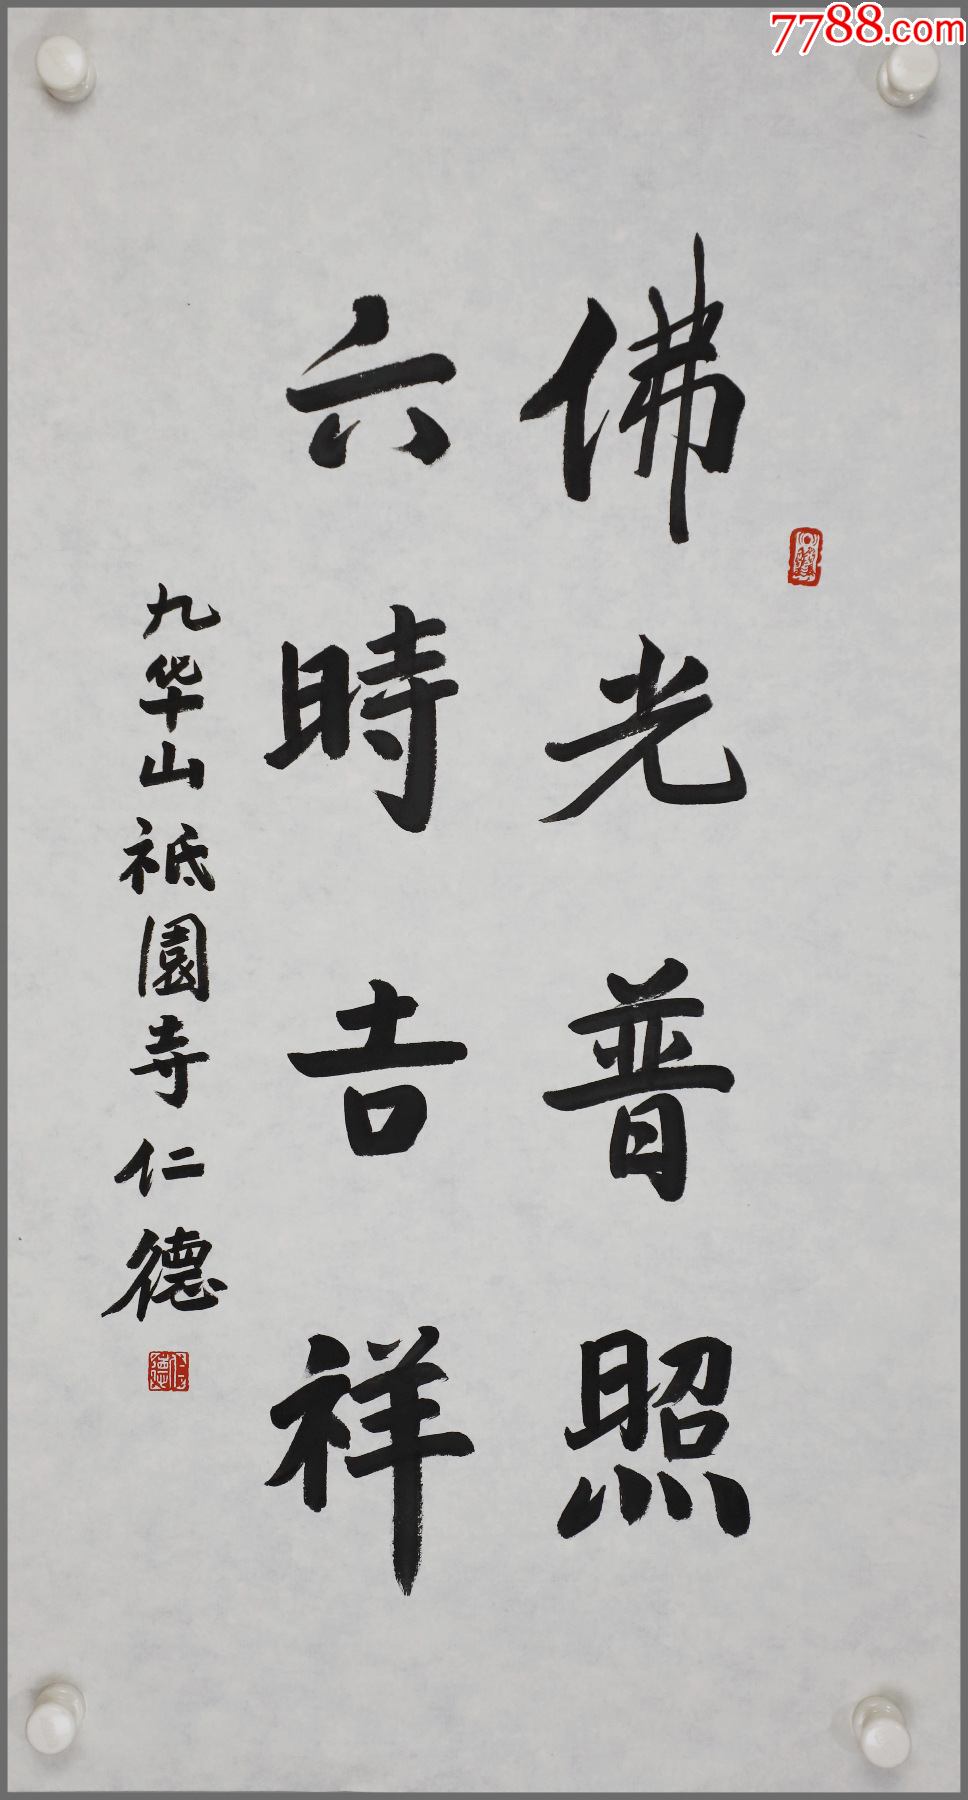 7788.com
佛光普照
六時吉祥
九华山祇園寺仁德
仁德